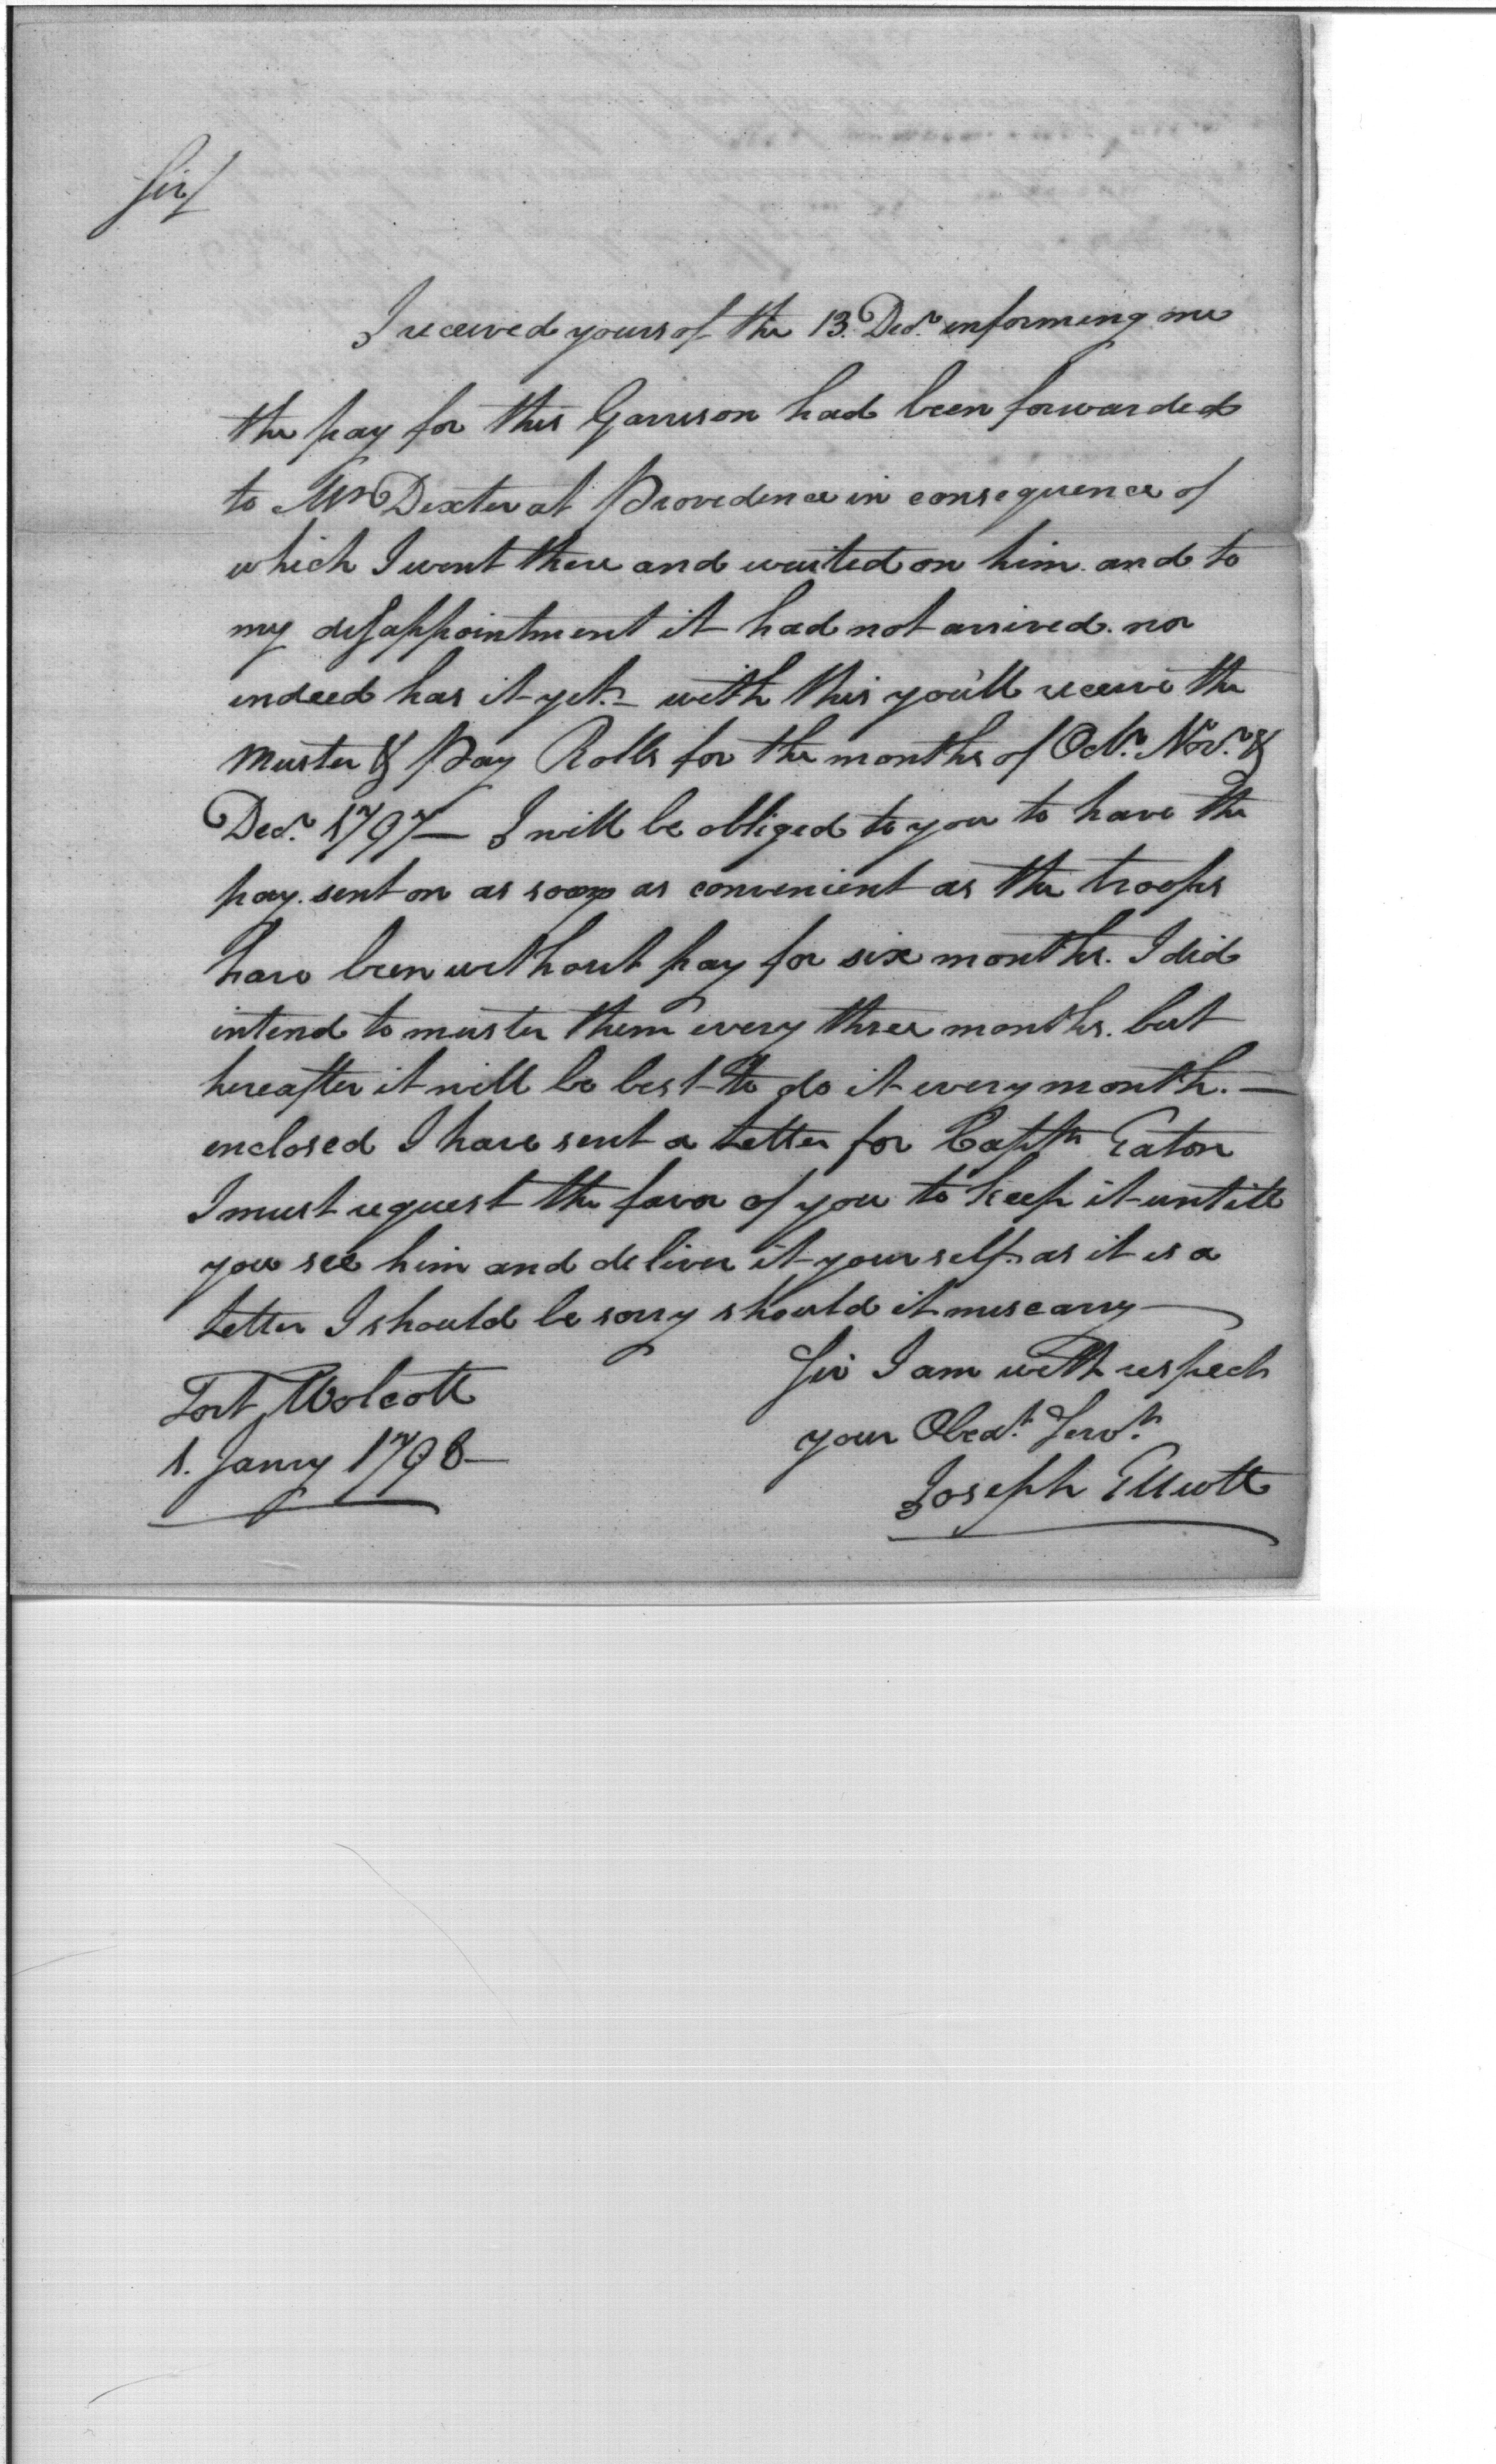 Sir/
I received yours of the 13. Decr. informing me
the pay for this Garrison had been forwarded
to Mr Dexter at Providence in consequence of
which I went there and waited on him. and to
my disappointment it had not arrived. nor
indeed has it yet.- with this you'll receive the
Muster & Pay Rolls for the months of Octr. Novr. &
Decr. 1797— I will be obliged to you to have the
pay. sent on as soon as convenient as the troops
have been without pay for six months. I did
intend to muster them every three months. but
hereafter it will be best to do it every month.—
enclosed I have sent a Letter for Captn Eaton
I must request the favor of you to keep it untill
you see him and deliver it yourself. as it is a
Letter I should be sorry should it miscarry—
Sir I am with respect
your Obedt. Servt.
Joseph Elliott
Fort Wolcott
1. Janry 1798—